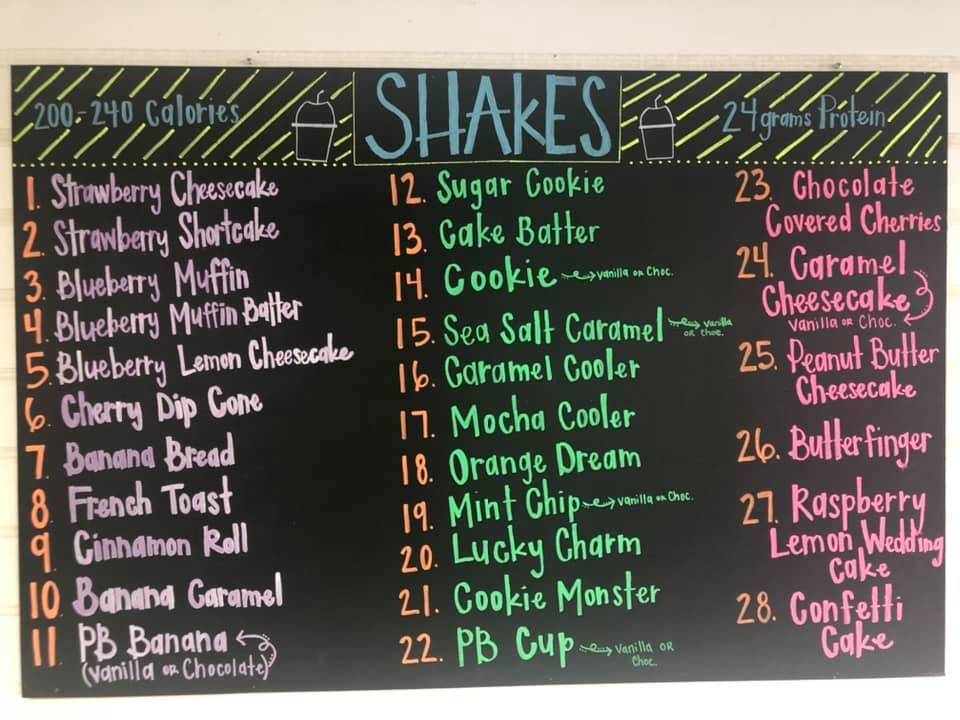 200-240 Calories
SHAKES
24 grams Protein
1. Strawberry Cheesecake
2. Strawberry Shortcake
3. Blueberry Muffin
4. Blueberry Muffin Batter
5. Blueberry Lemon Cheesecake
6. Cherry Dip Cone
7. Banana Bread
8. French Toast
9. Cinnamon Roll
10. Banana Caramel
11. PB Banana
(vanilla or Chocolate)
12. Sugar Cookie
13. Cake Batter
14. Cookie vanilla or Choc.
15. Sea Salt Caramel vanilla
or choc.
16. Caramel Cooler
17. Mocha Cooler
18. Orange Dream
19. Mint Chip vanilla or Choc.
20. Lucky Charm
21. Cookie Monster
22. PB Cup vanilla or
Choc.
23. Chocolate
Covered Cherries
24. Caramel
Cheesecake
vanilla or Choc.
25. Peanut Butter
Cheesecake
26. Butterfinger
27. Raspberry
Lemon Wedding
Cake
28. Confetti
Cake